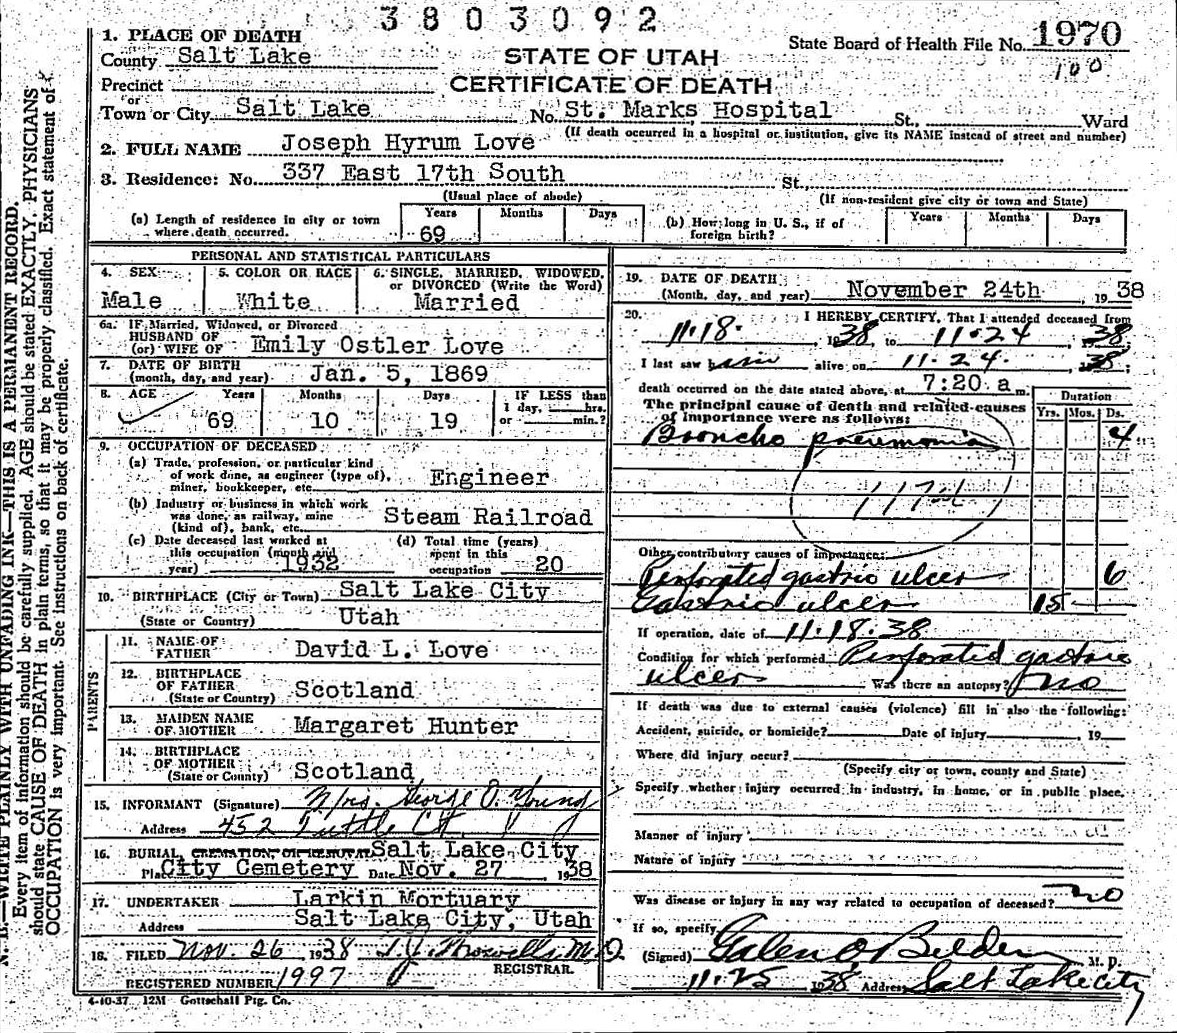 3803092
1. PLACE OF DEATH
County Salt Lake
STATE OF UTAH
State Board of Health File No. 1970
100
Precinct
CERTIFICATE OF DEATH
or
Town or City Salt Lake No. St. Marks Hospital St., Ward
(If death occurred in a hospital or institution, give its NAME instead of street and number)
2. FULL NAME Joseph Hyrum Love
3. Residence: No. 337 East 17th South St.,
(Usual place of abode) (If non-resident give city or town and State)
(a) Length of residence in city or town where death occurred. Years 69 Months Days
(b) How long in U. S., if of foreign birth? Years Months Days
PERSONAL AND STATISTICAL PARTICULARS
4. SEX Male
5. COLOR OR RACE White
6. SINGLE, MARRIED, WIDOWED, or DIVORCED (Write the Word) Married
6a. If Married, Widowed, or Divorced
HUSBAND OF
(or) WIFE OF Emily Ostler Love
7. DATE OF BIRTH
(month, day, and year) Jan. 5, 1869
8. AGE Years 69 Months 10 Days 19 IF LESS than 1 day, hrs. or min.?
9. OCCUPATION OF DECEASED
(a) Trade, profession, or particular kind of work done, as engineer (type of), miner, bookkeeper, etc. Engineer
(b) Industry or business in which work was done, as railway, mine (kind of), bank, etc. Steam Railroad
(c) Date deceased last worked at this occupation (month and year) 1932
(d) Total time (years) spent in this occupation 20
10. BIRTHPLACE (City or Town) Salt Lake City
(State or Country) Utah
PARENTS
11. NAME OF FATHER David L. Love
12. BIRTHPLACE OF FATHER (State or Country) Scotland
13. MAIDEN NAME OF MOTHER Margaret Hunter
14. BIRTHPLACE OF MOTHER (State or Country) Scotland
15. INFORMANT (Signature) Mrs. George O. Young
Address 452 Tuttle Ct.
16. BURIAL, CREMATION, OR REMOVAL Salt Lake City
Place City Cemetery Date Nov. 27 1938
17. UNDERTAKER Larkin Mortuary
Address Salt Lake City, Utah
18. FILED Nov. 26 1938 M.D.
REGISTRAR.
REGISTERED NUMBER 1997
4-10-37 12M Gottschall Ptg. Co.
19. DATE OF DEATH
(Month, day, and year) November 24th, 1938
20. I HEREBY CERTIFY, That I attended deceased from
11.18. , 1938, to 11.24 , 1938
I last saw him alive on 11.24. 1938;
death occurred on the date stated above, at 7:20 a m.
The principal cause of death and related causes of importance were as follows:
Duration
Yrs. Mos. Ds.
Broncho pneumonia 4
Other contributory causes of importance:
Perforated gastric ulcer 6
Gastric ulcer 15
If operation, date of 11.18.38
Condition for which performed Perforated gastric
ulcer Was there an autopsy? no
If death was due to external causes (violence) fill in also the following:
Accident, suicide, or homicide? Date of injury , 19
Where did injury occur?
(Specify city or town, county and State)
Specify whether injury occurred in industry, in home, or in public place.
Manner of injury
Nature of injury
Was disease or injury in any way related to occupation of deceased? no
If so, specify
(Signed) Galen O Belden M. D.
11.25 1938 Address Salt Lake City
N. B.—WRITE PLAINLY WITH UNFADING INK—THIS IS A PERMANENT RECORD.
Every item of information should be carefully supplied. AGE should be stated EXACTLY. PHYSICIANS
should state CAUSE OF DEATH in plain terms, so that it may be properly classified. Exact statement of
OCCUPATION is very important. See instructions on back of certificate.